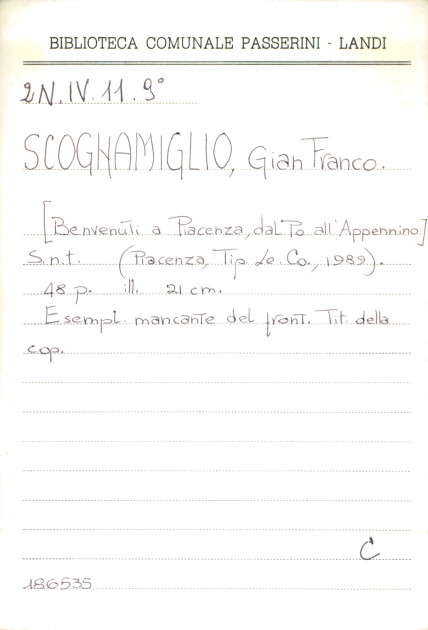 BIBLIOTECA COMUNALE PASSERINI - LANDI
2N.IV.11.9°
SCOGNAMIGLIO, Gian Franco.
[Benvenuti a Piacenza, dal Po all'Appennino.]
S.n.t. (Piacenza, Tip. Le. Co., 1989).
48 p. ill. 21 cm.
Esempl. mancante del front. Tit. della
cop.
C
186535